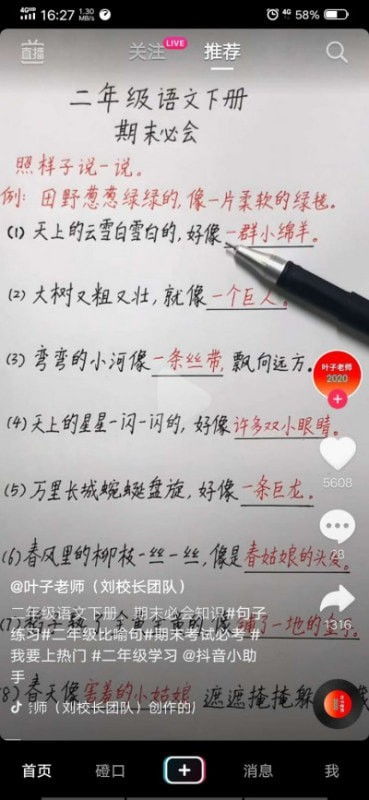 16:27 1.30 MB/s 4G 58%
直播 关注 LIVE 推荐
二年级语文下册
期末必会
照样子说一说。
例：田野葱葱绿绿的，像一片柔软的绿毯。
(1) 天上的云雪白雪白的，好像一群小绵羊。
(2) 大树又粗又壮，就像一个巨人。
(3) 弯弯的小河像一条丝带，飘向远方。
叶子老师
2020
(4) 天上的星星一闪一闪的，好像许多双小眼睛。
5608
(5) 万里长城蜿蜒盘旋，好像一条巨龙。
28
(6) 春风里的柳枝一丝一丝，像是春姑娘的头发。
@叶子老师（刘校长团队）
二年级语文下册，期末必会知识#句子
1316
(7) 一地的
练习#二年级比喻句#期末考试必考 #
我要上热门 #二年级学习 @抖音小助
手
(8) 春天像害羞的小姑娘，遮遮掩掩躲
师（刘校长团队）创作的
首页 磴口 + 消息 我